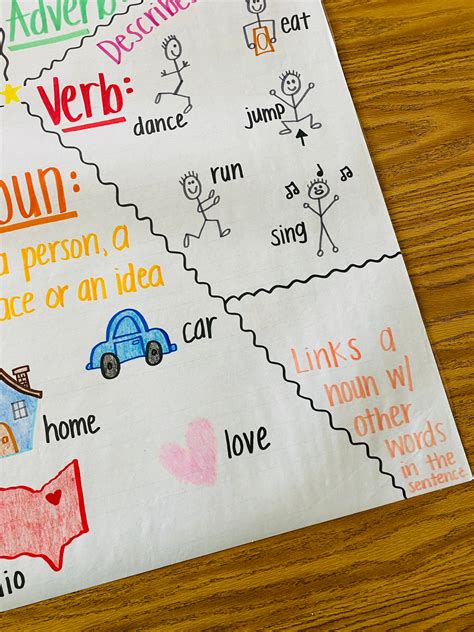 Adverb
Describe
Verb:
eat
dance
jump
run
sing
oun:
a person, a
ace or an idea
car
home
love
io
Links a
noun w/
other
words
in the
sentence